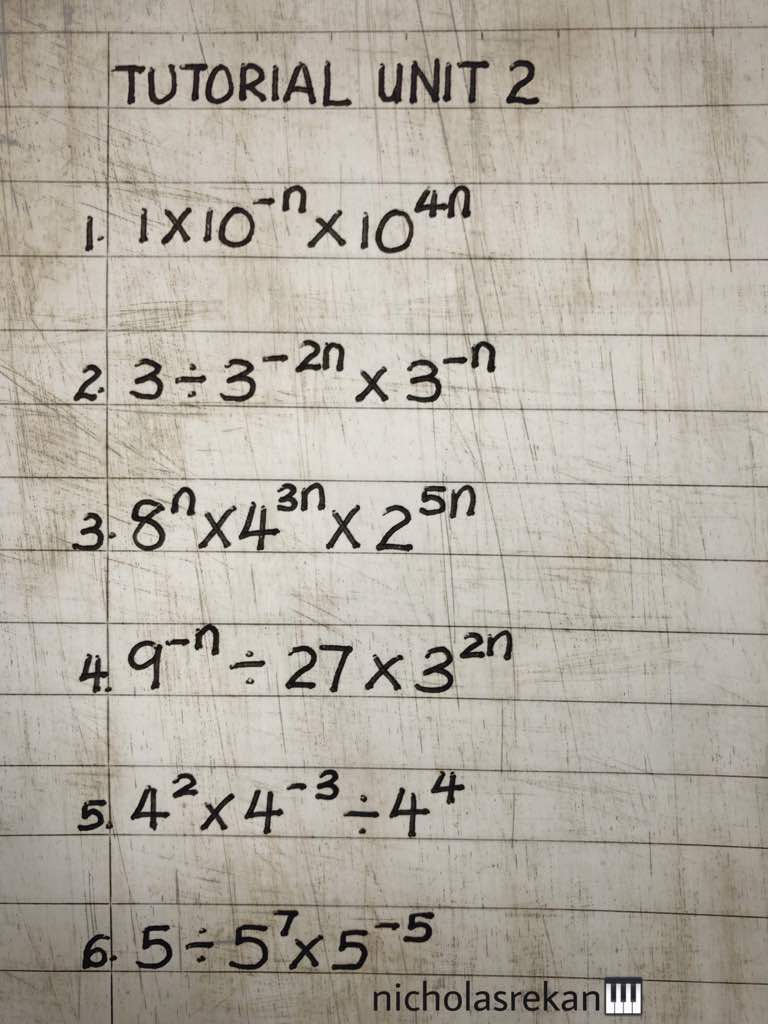 TUTORIAL UNIT 2
1. 1×10⁻ⁿ×10⁴ⁿ
2. 3÷3⁻²ⁿ×3⁻ⁿ
3. 8ⁿ×4³ⁿ×2⁵ⁿ
4. 9⁻ⁿ÷27×3²ⁿ
5. 4²×4⁻³÷4⁴
6. 5÷5⁷×5⁻⁵
nicholasrekan🎹